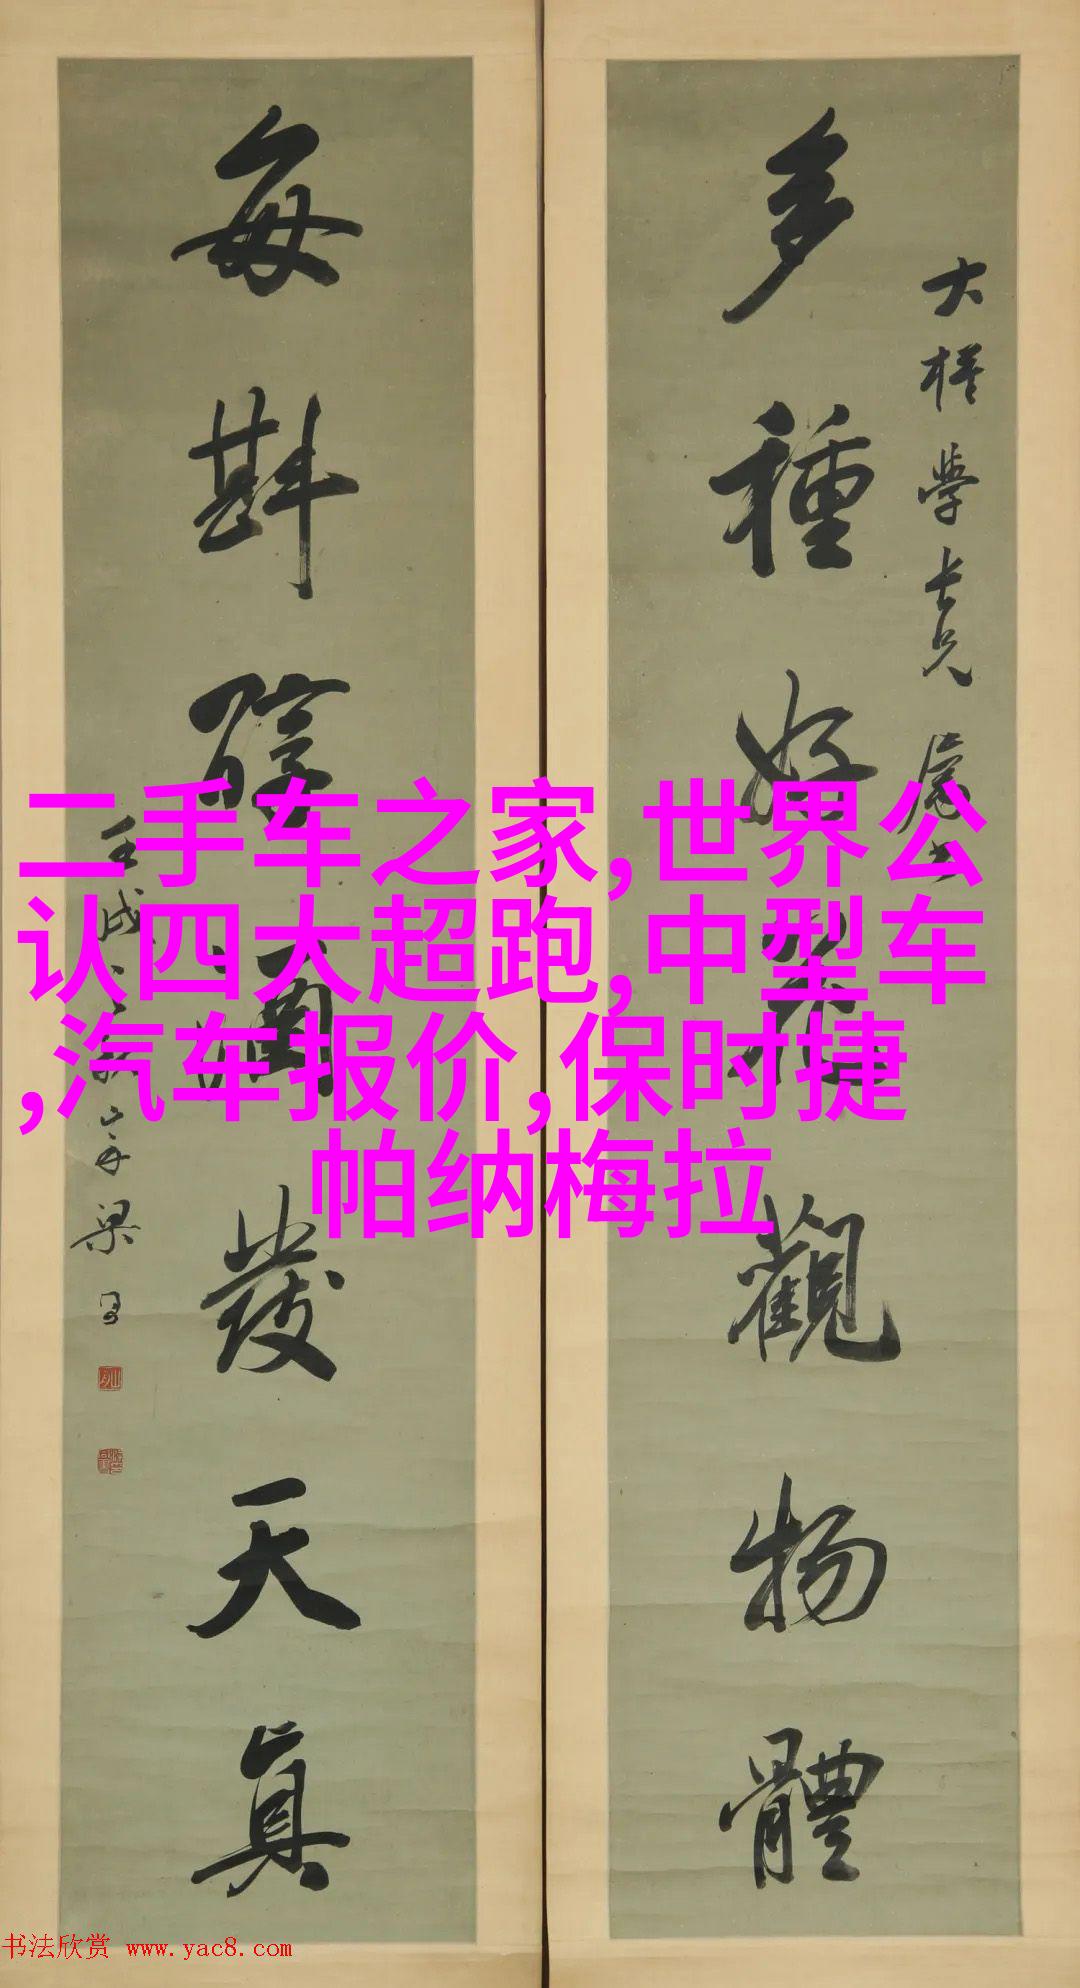 多種好花觀物體
每斟醇酒發天真
大槎學長兄
二手车之家,世界公
认四大超跑,中型车
,汽车报价,保时捷
帕纳梅拉
书法欣赏 www.yac8.com